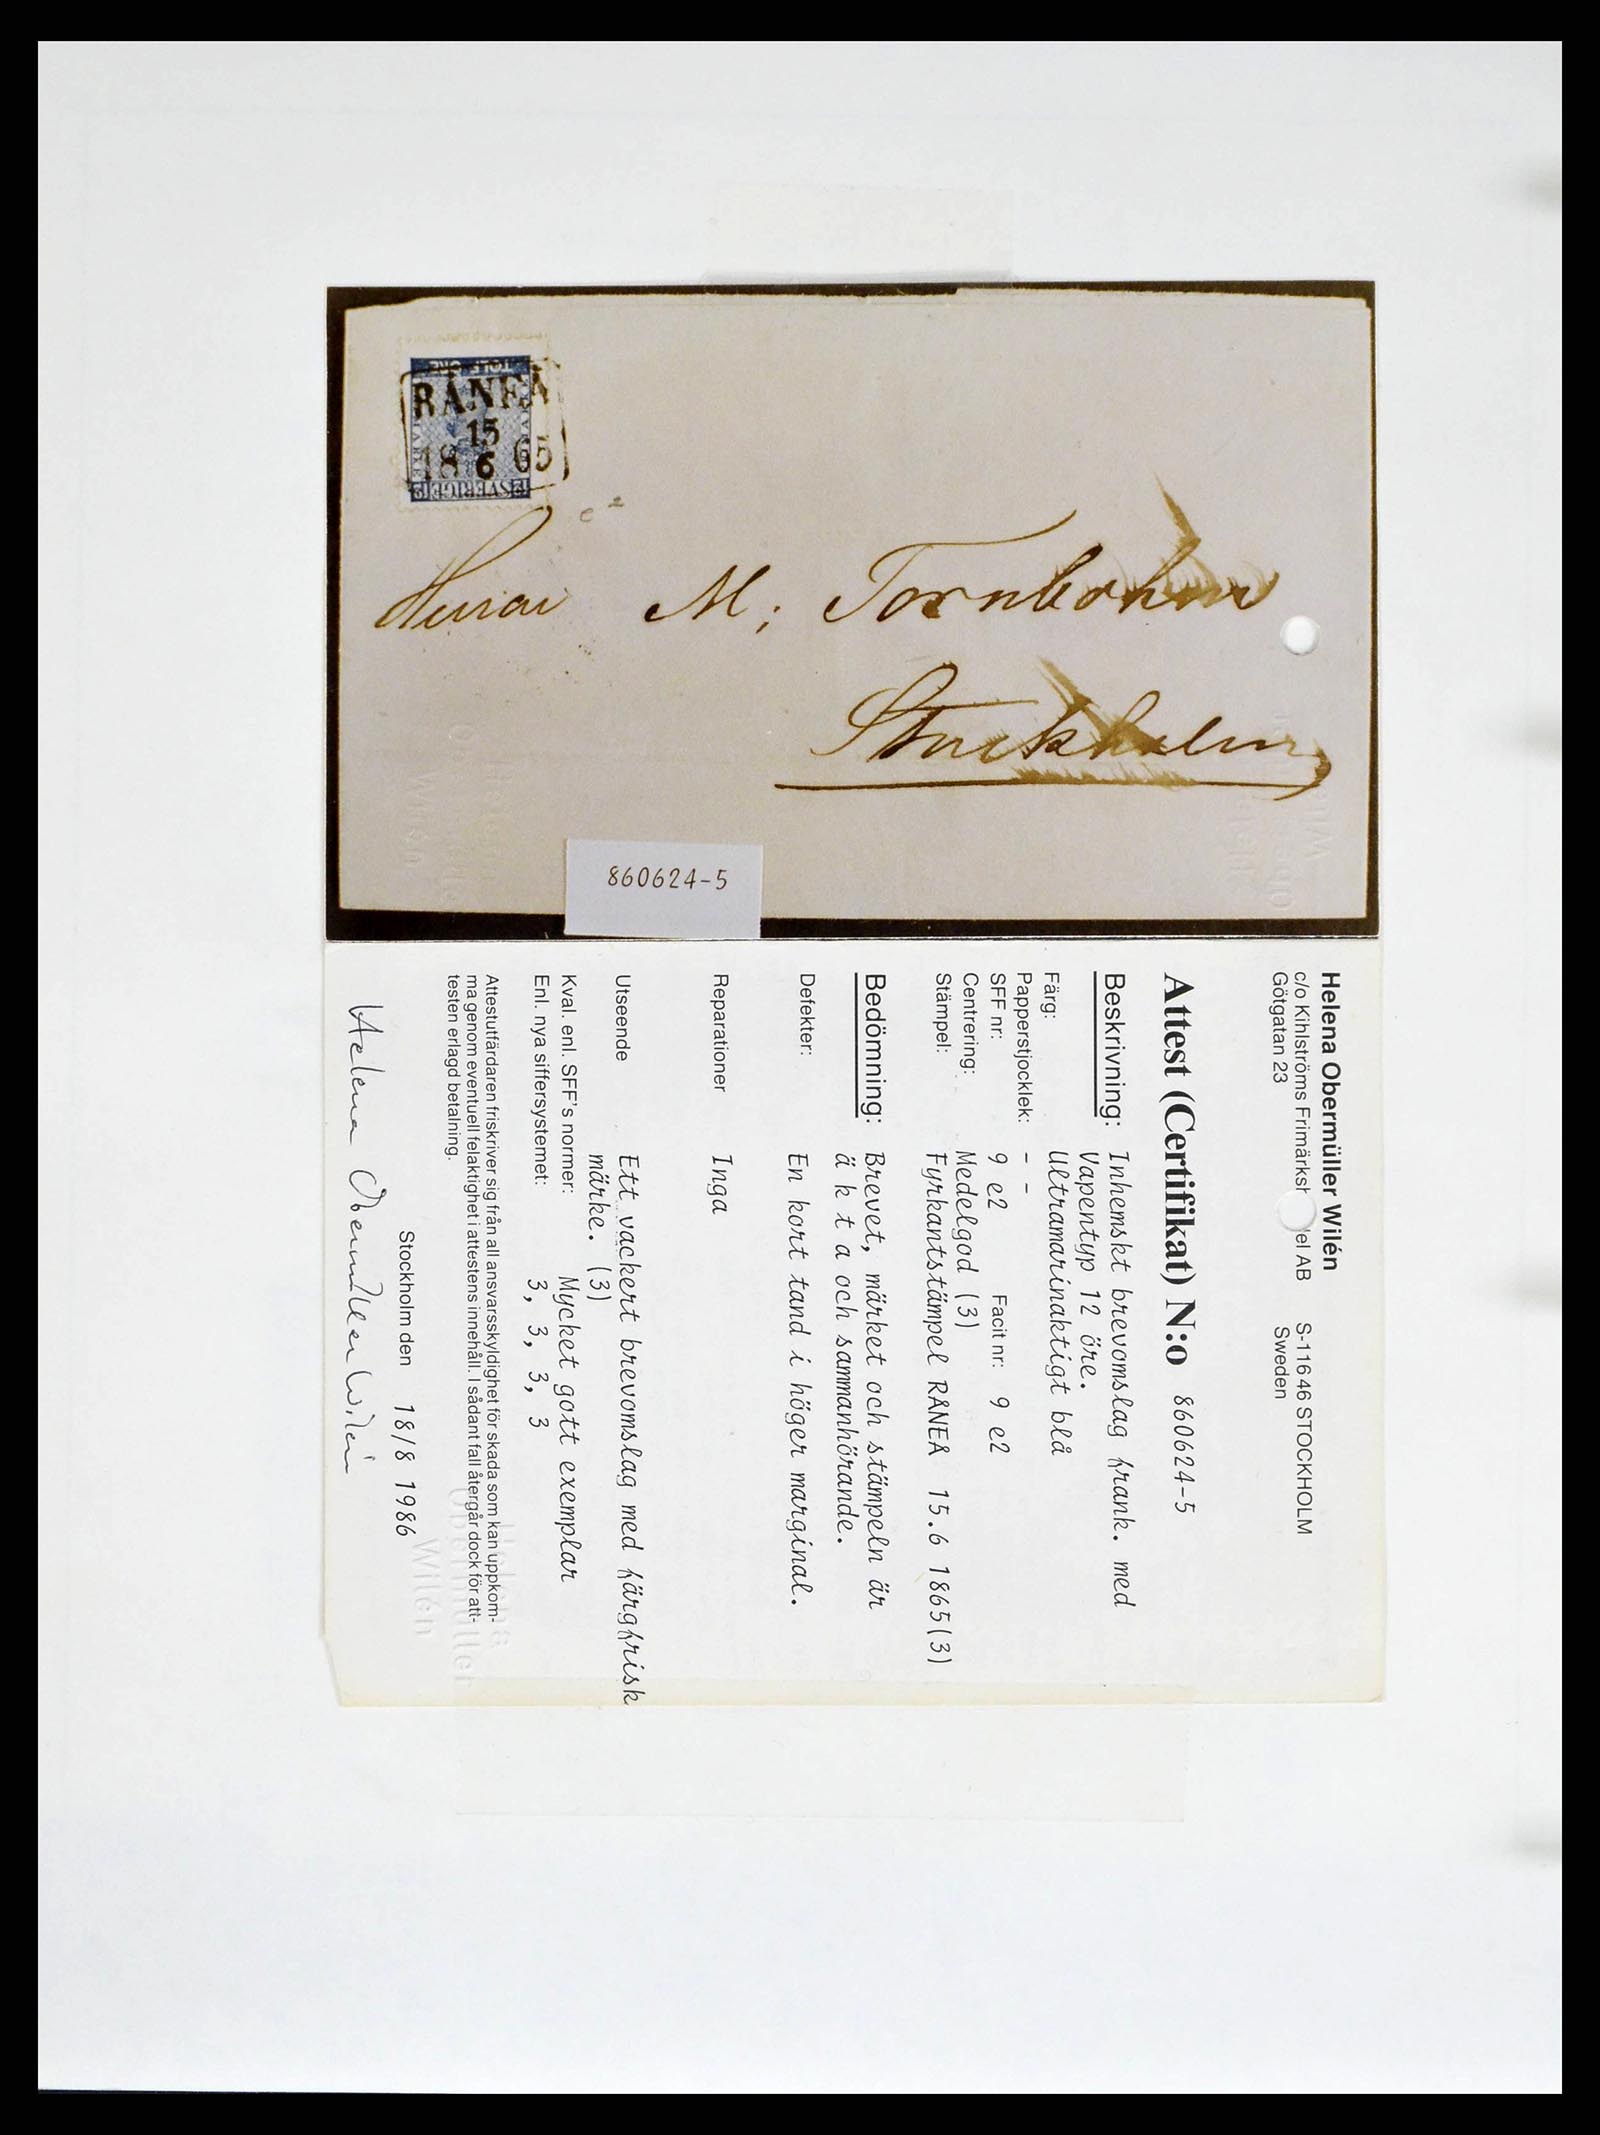 RÅNEÅ
15
18 6 65
SVERIGE
Herrar M; Tornbohm
Stockholm
860624-5
Helena Obermüller Wilén
c/o Kihlströms Frimärksh el AB S-116 46 STOCKHOLM
Götgatan 23 Sweden
Attest (Certifikat) N:o 860624-5
Beskrivning: Inhemskt brevomslag frank. med
Vapentyp 12 öre.
Färg: Ultramarinaktigt blå
Papperstjocklek: - -
SFF nr: 9 e2 Facit nr: 9 e2
Centrering: Medelgod (3)
Stämpel: Fyrkantstämpel RÅNEÅ 15.6 1865(3)
Bedömning: Brevet, märket och stämpeln är
ä k t a och sammanhörande.
Defekter: En kort tand i höger marginal.
Reparationer Inga
Utseende Ett vackert brevomslag med färgfrisk
märke. (3)
Kval. enl. SFF's normer: Mycket gott exemplar
Enl. nya siffersystemet: 3, 3, 3, 3
Attestutfärdaren friskriver sig från all ansvarsskyldighet för skada som kan uppkom-
ma genom eventuell felaktighet i attestens innehåll. I sådant fall återgår dock för att-
testen erlagd betalning.
Stockholm den 18/8 1986
Helena Obermüller Wilén